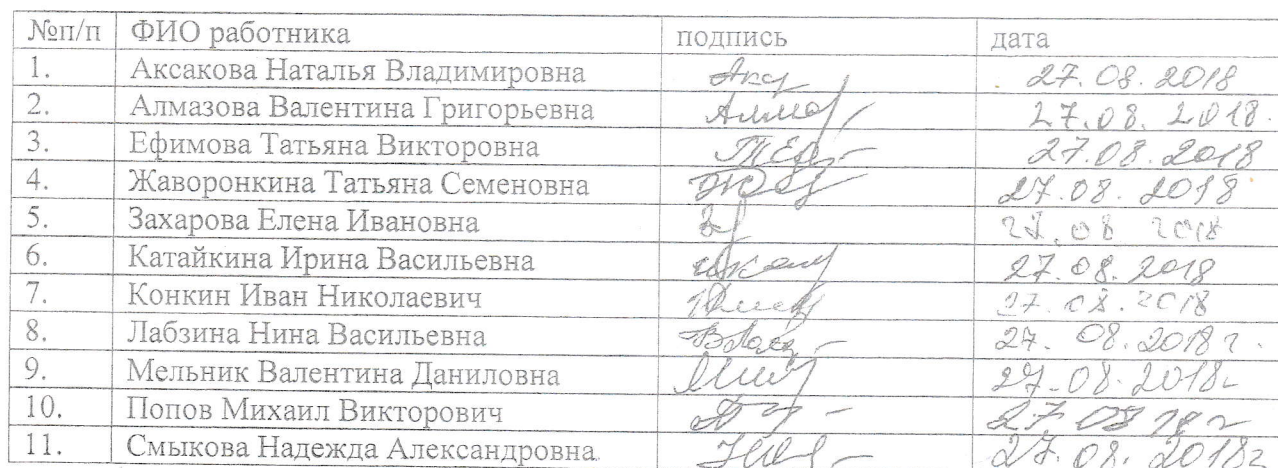 №п/п ФИО работника подпись дата
1. Аксакова Наталья Владимировна 27.08.2018
2. Алмазова Валентина Григорьевна 27.08.2018.
3. Ефимова Татьяна Викторовна 27.08.2018
4. Жаворонкина Татьяна Семеновна 27.08.2018
5. Захарова Елена Ивановна 27.08 2018
6. Катайкина Ирина Васильевна 27.08.2018
7. Конкин Иван Николаевич 27.08.2018
8. Лабзина Нина Васильевна 27.08.2018г.
9. Мельник Валентина Даниловна 27.08.2018г
10. Попов Михаил Викторович 27.08 18 г
11. Смыкова Надежда Александровна 27.08.2018г